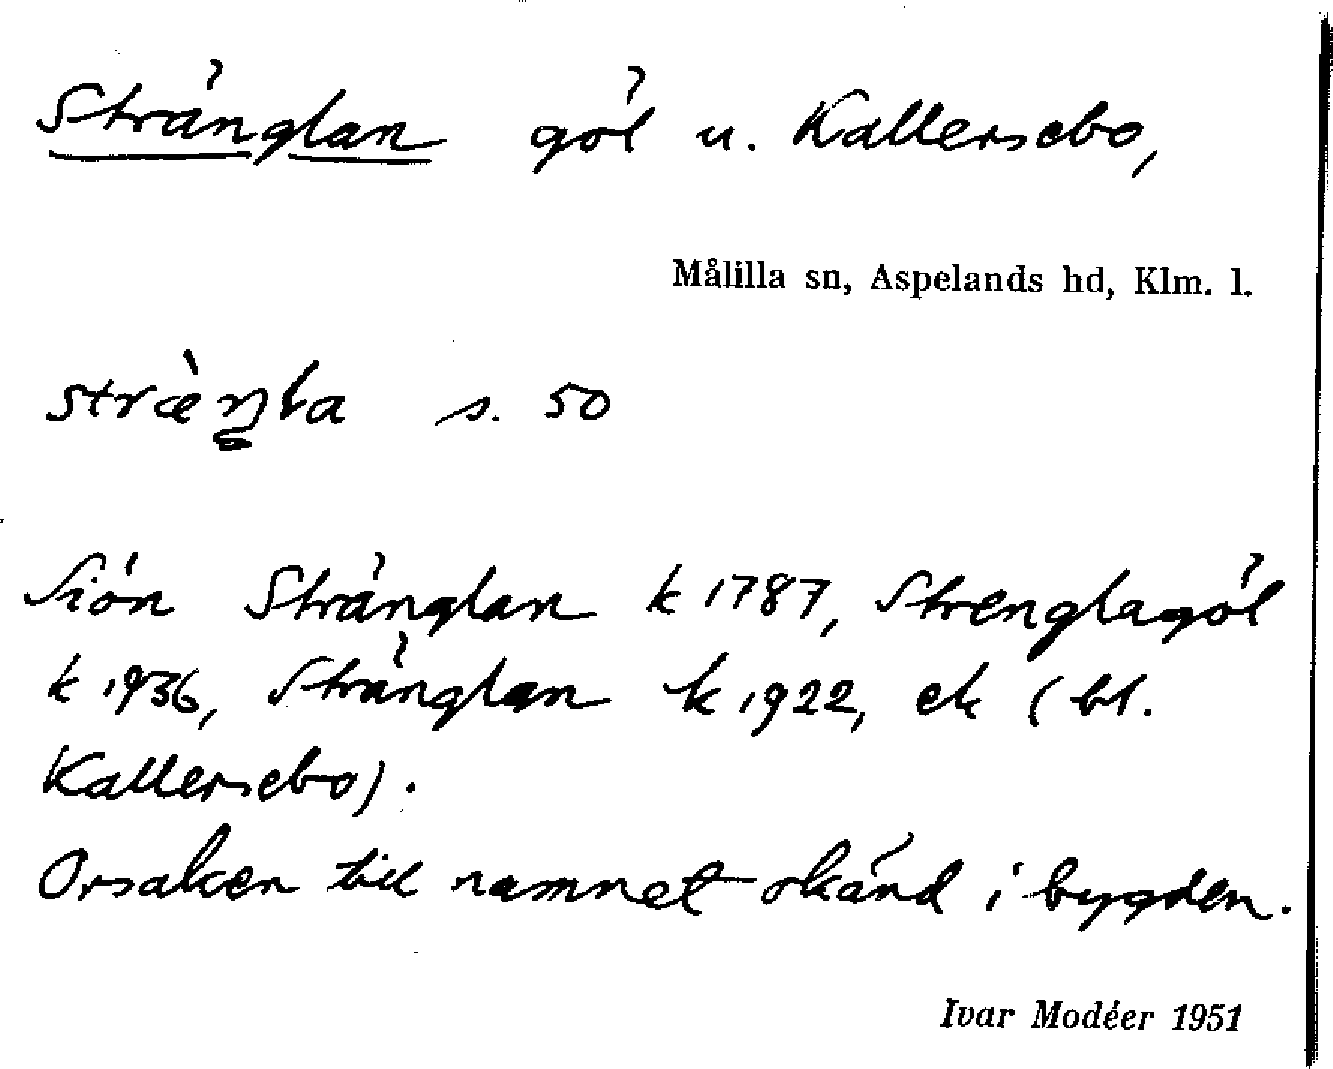 Stränglan göl u. Kallersebo,
Målilla sn, Aspelands hd, Klm. l.
stræ̀ŋla s. 50
Siön Stränglan k 1787, Strenglagöl
k 1936, Stränglan k 1922, ek (bl.
Kallersebo).
Orsaken till namnet okänd i bygden.
Ivar Modéer 1951